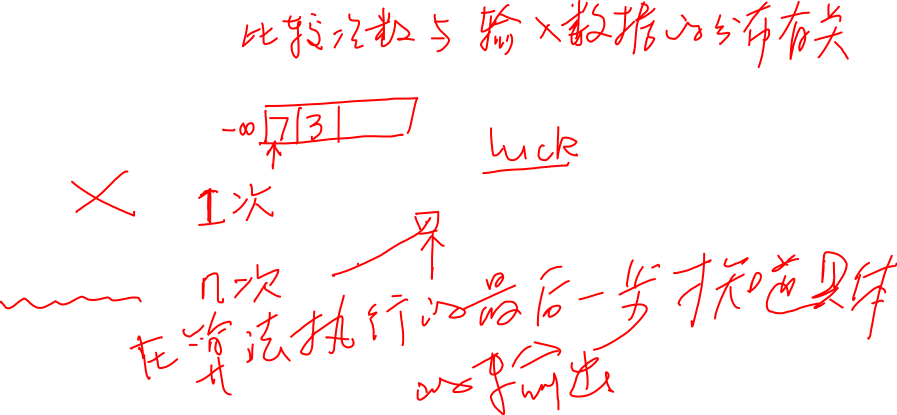 比较次数与输入数据的分布有关
-∞ 7 3
luck
1次
n次
在算法执行的最后一步才知道具体
的输出